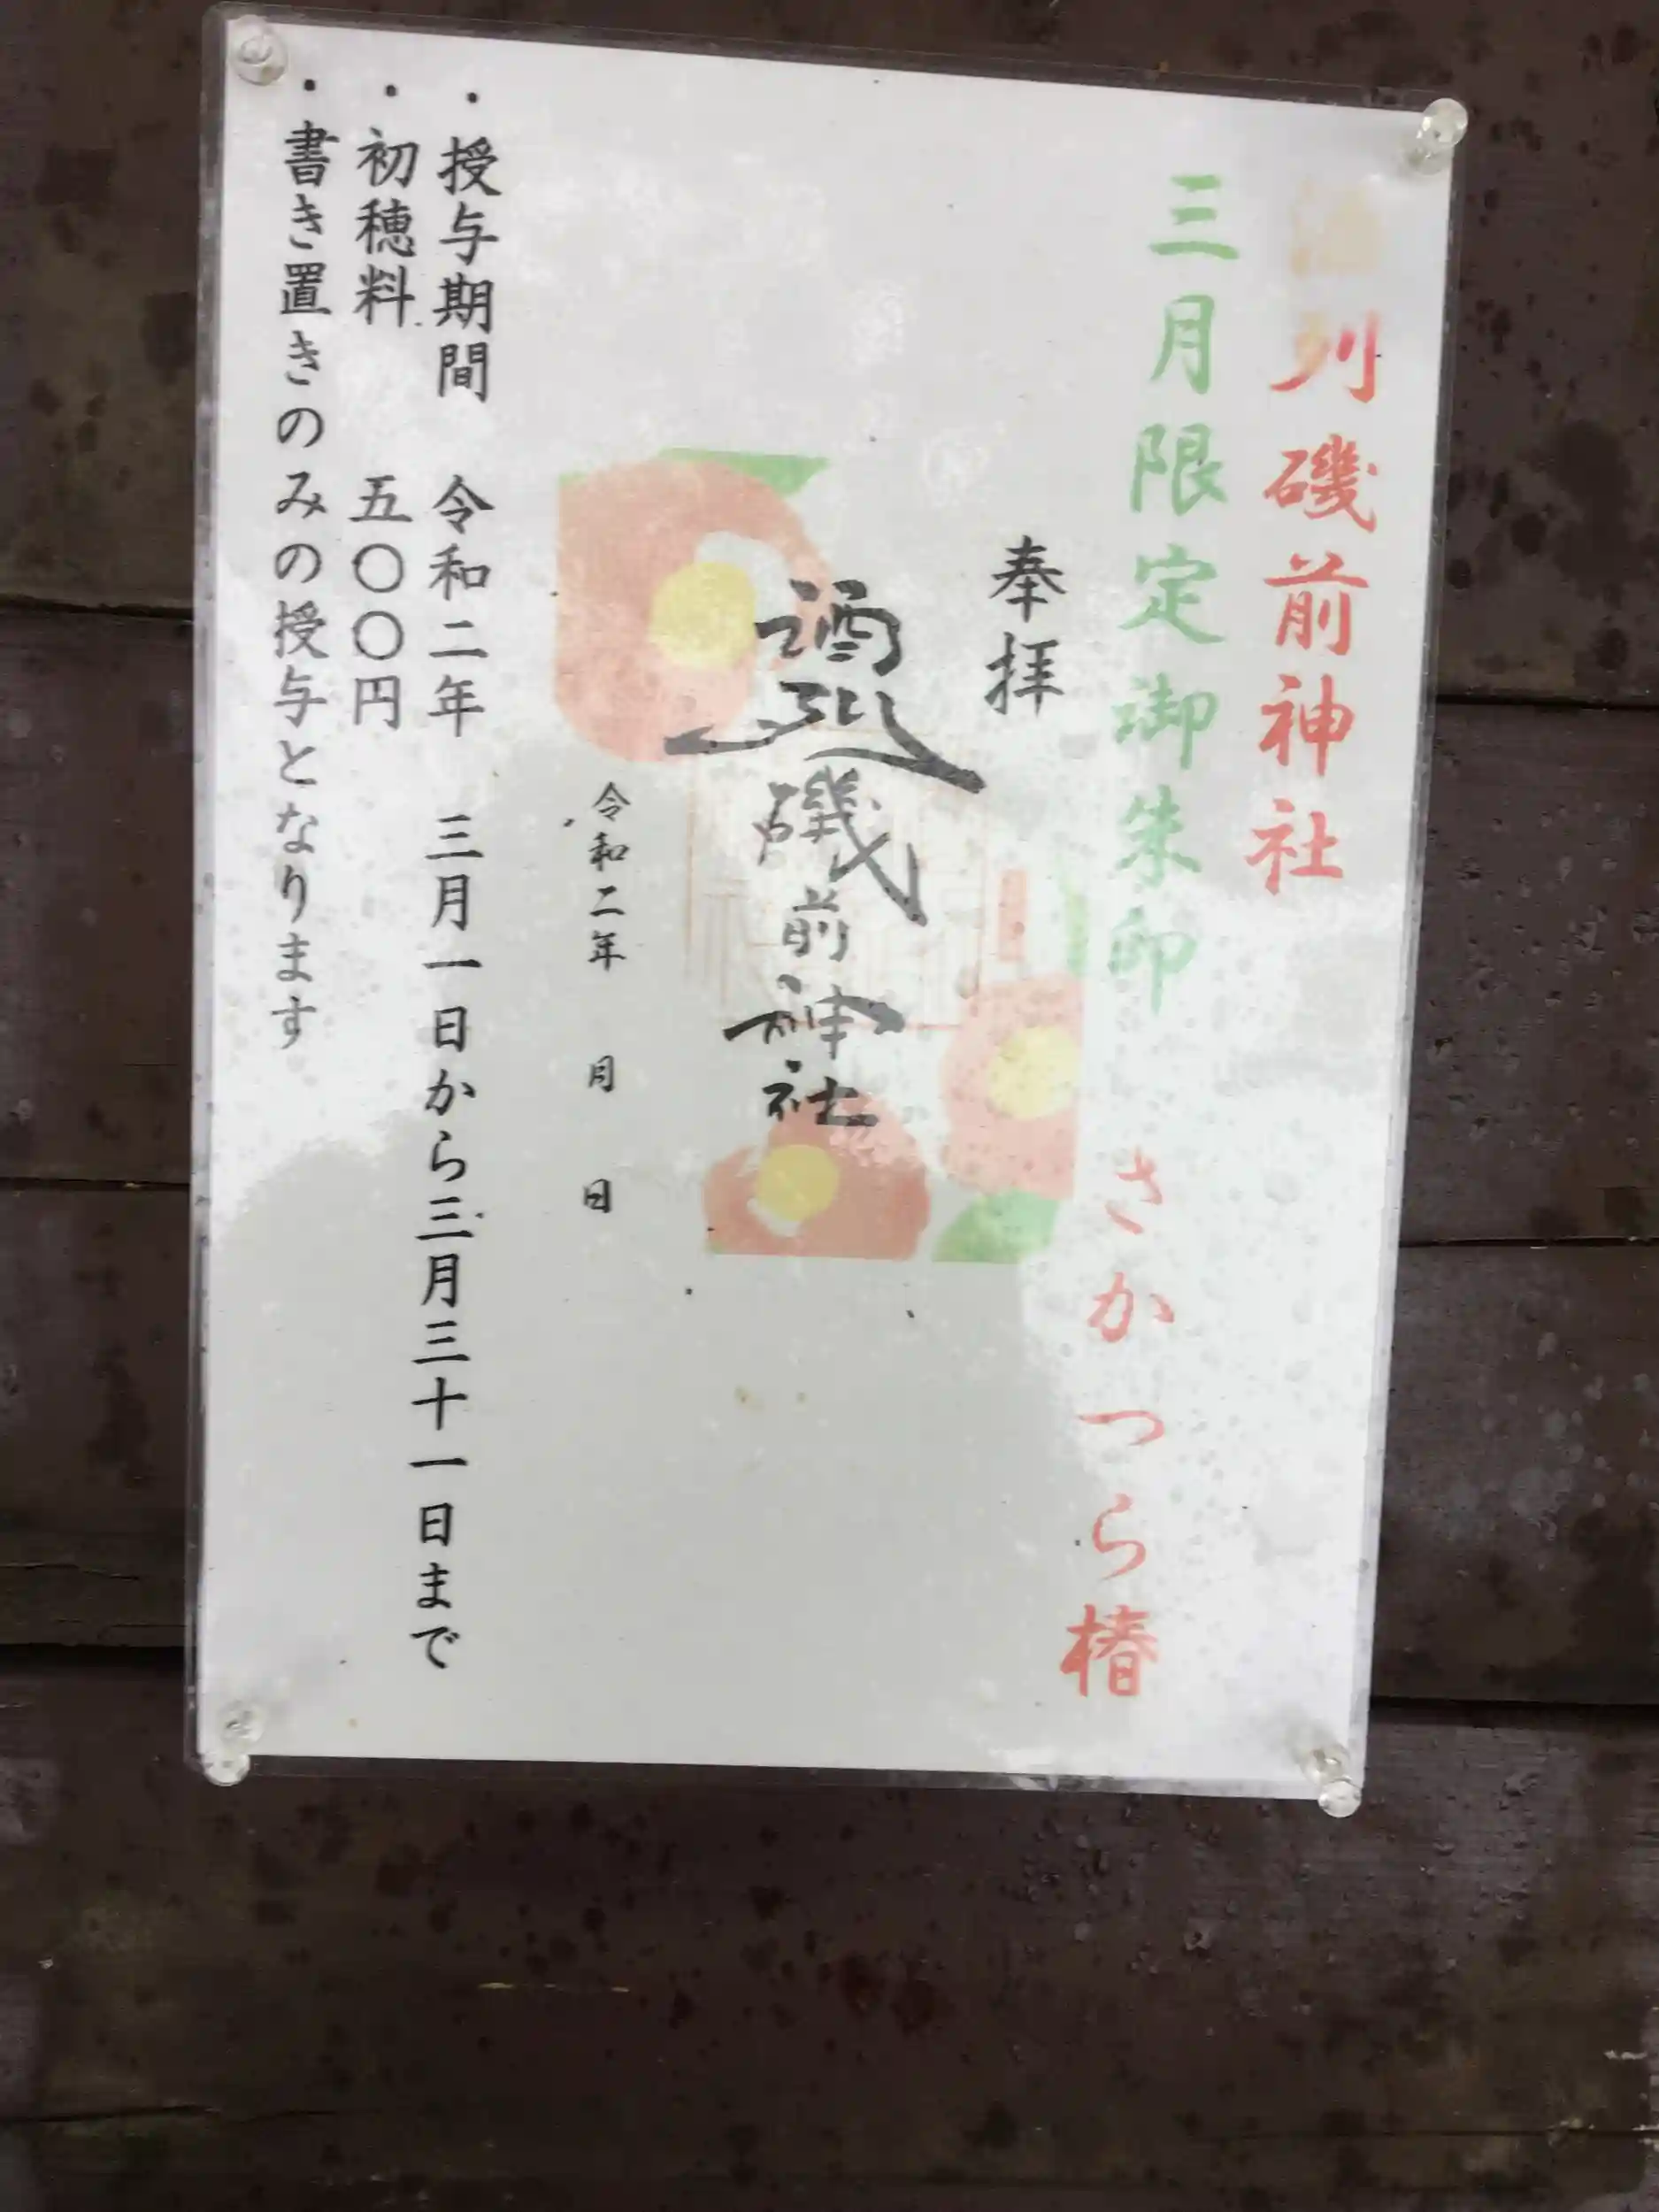 酒列磯前神社
三月限定御朱印 さかつら椿
奉拝
酒列磯前神社
令和二年 月 日
・授与期間 令和二年 三月一日から三月三十一日まで
・初穂料 五〇〇円
・書き置きのみの授与となります